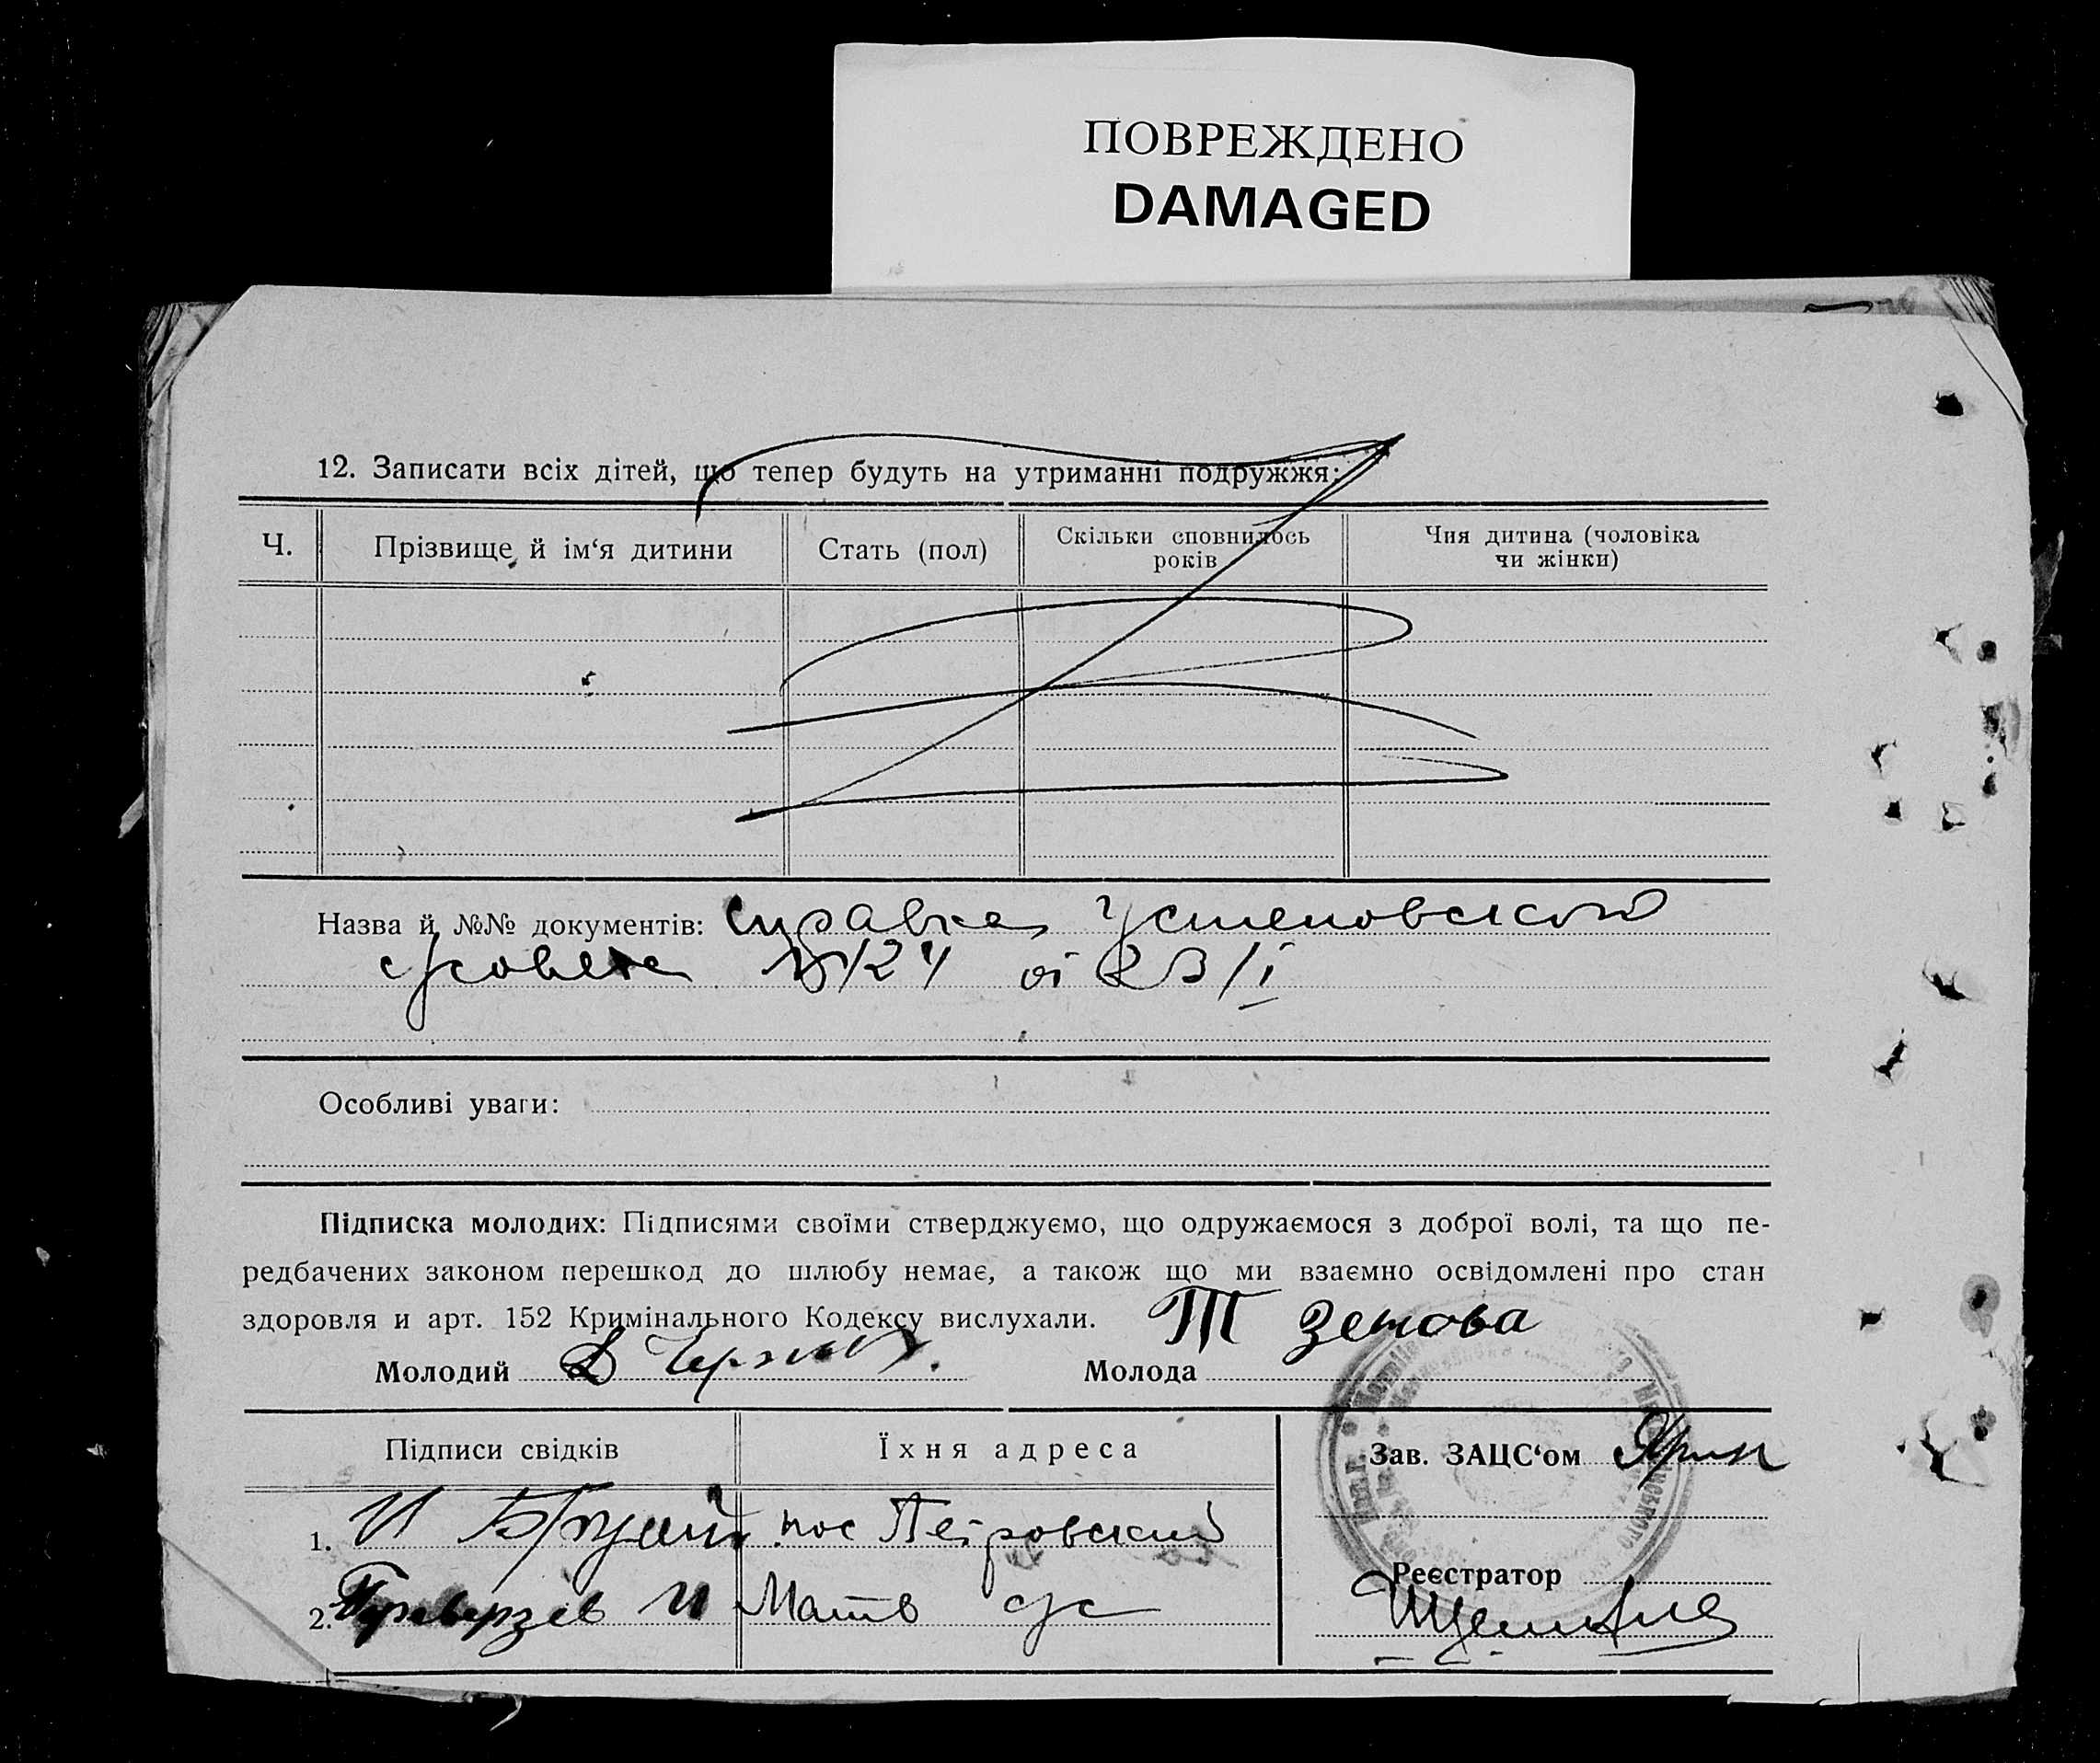 ПОВРЕЖДЕНО
DAMAGED
12. Записати всіх дітей, що тепер будуть на утриманні подружжя:
Ч.
Прізвище й ім‘я дитини
Стать (пол)
Скільки сповнилось
років
Чия дитина (чоловіка
чи жінки)
Назва й №№ документів: Справка
с/совета №124 от 23/I
Особливі уваги:
Підписка молодих: Підписями своїми стверджуємо, що одружаємося з доброї волі, та що пе-
редбачених законом перешкод до шлюбу немає, а також що ми взаємно освідомлені про стан
здоровля и арт. 152 Кримінального Кодексу вислухали.
Молодий Д
Молода Т Зетова
Підписи свідків
Їхня адреса
Зав. ЗАЦС‘ом
1. И пос Петровский
2. Переверзев И Матв с/с
Реєстратор